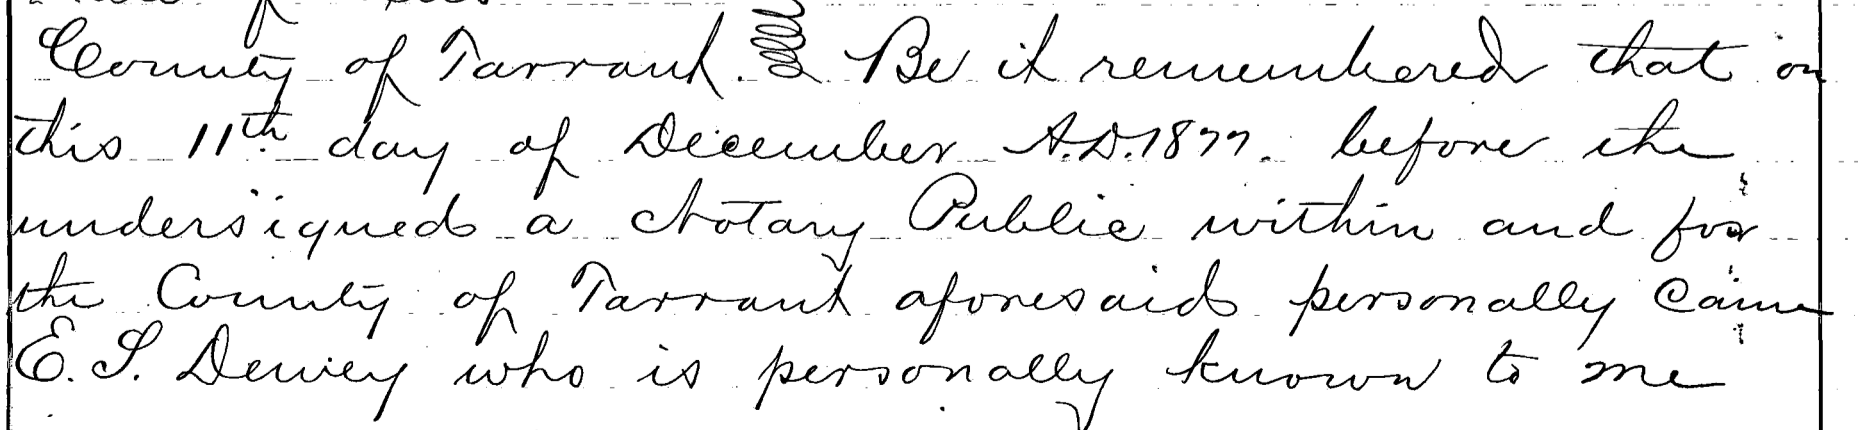 County of Tarrant. Be it remembered that on
this 11th day of December A.D. 1877. before the
undersigned a Notary Public within and for
the County of Tarrant aforesaid personally came
E. S. Dewey who is personally known to me